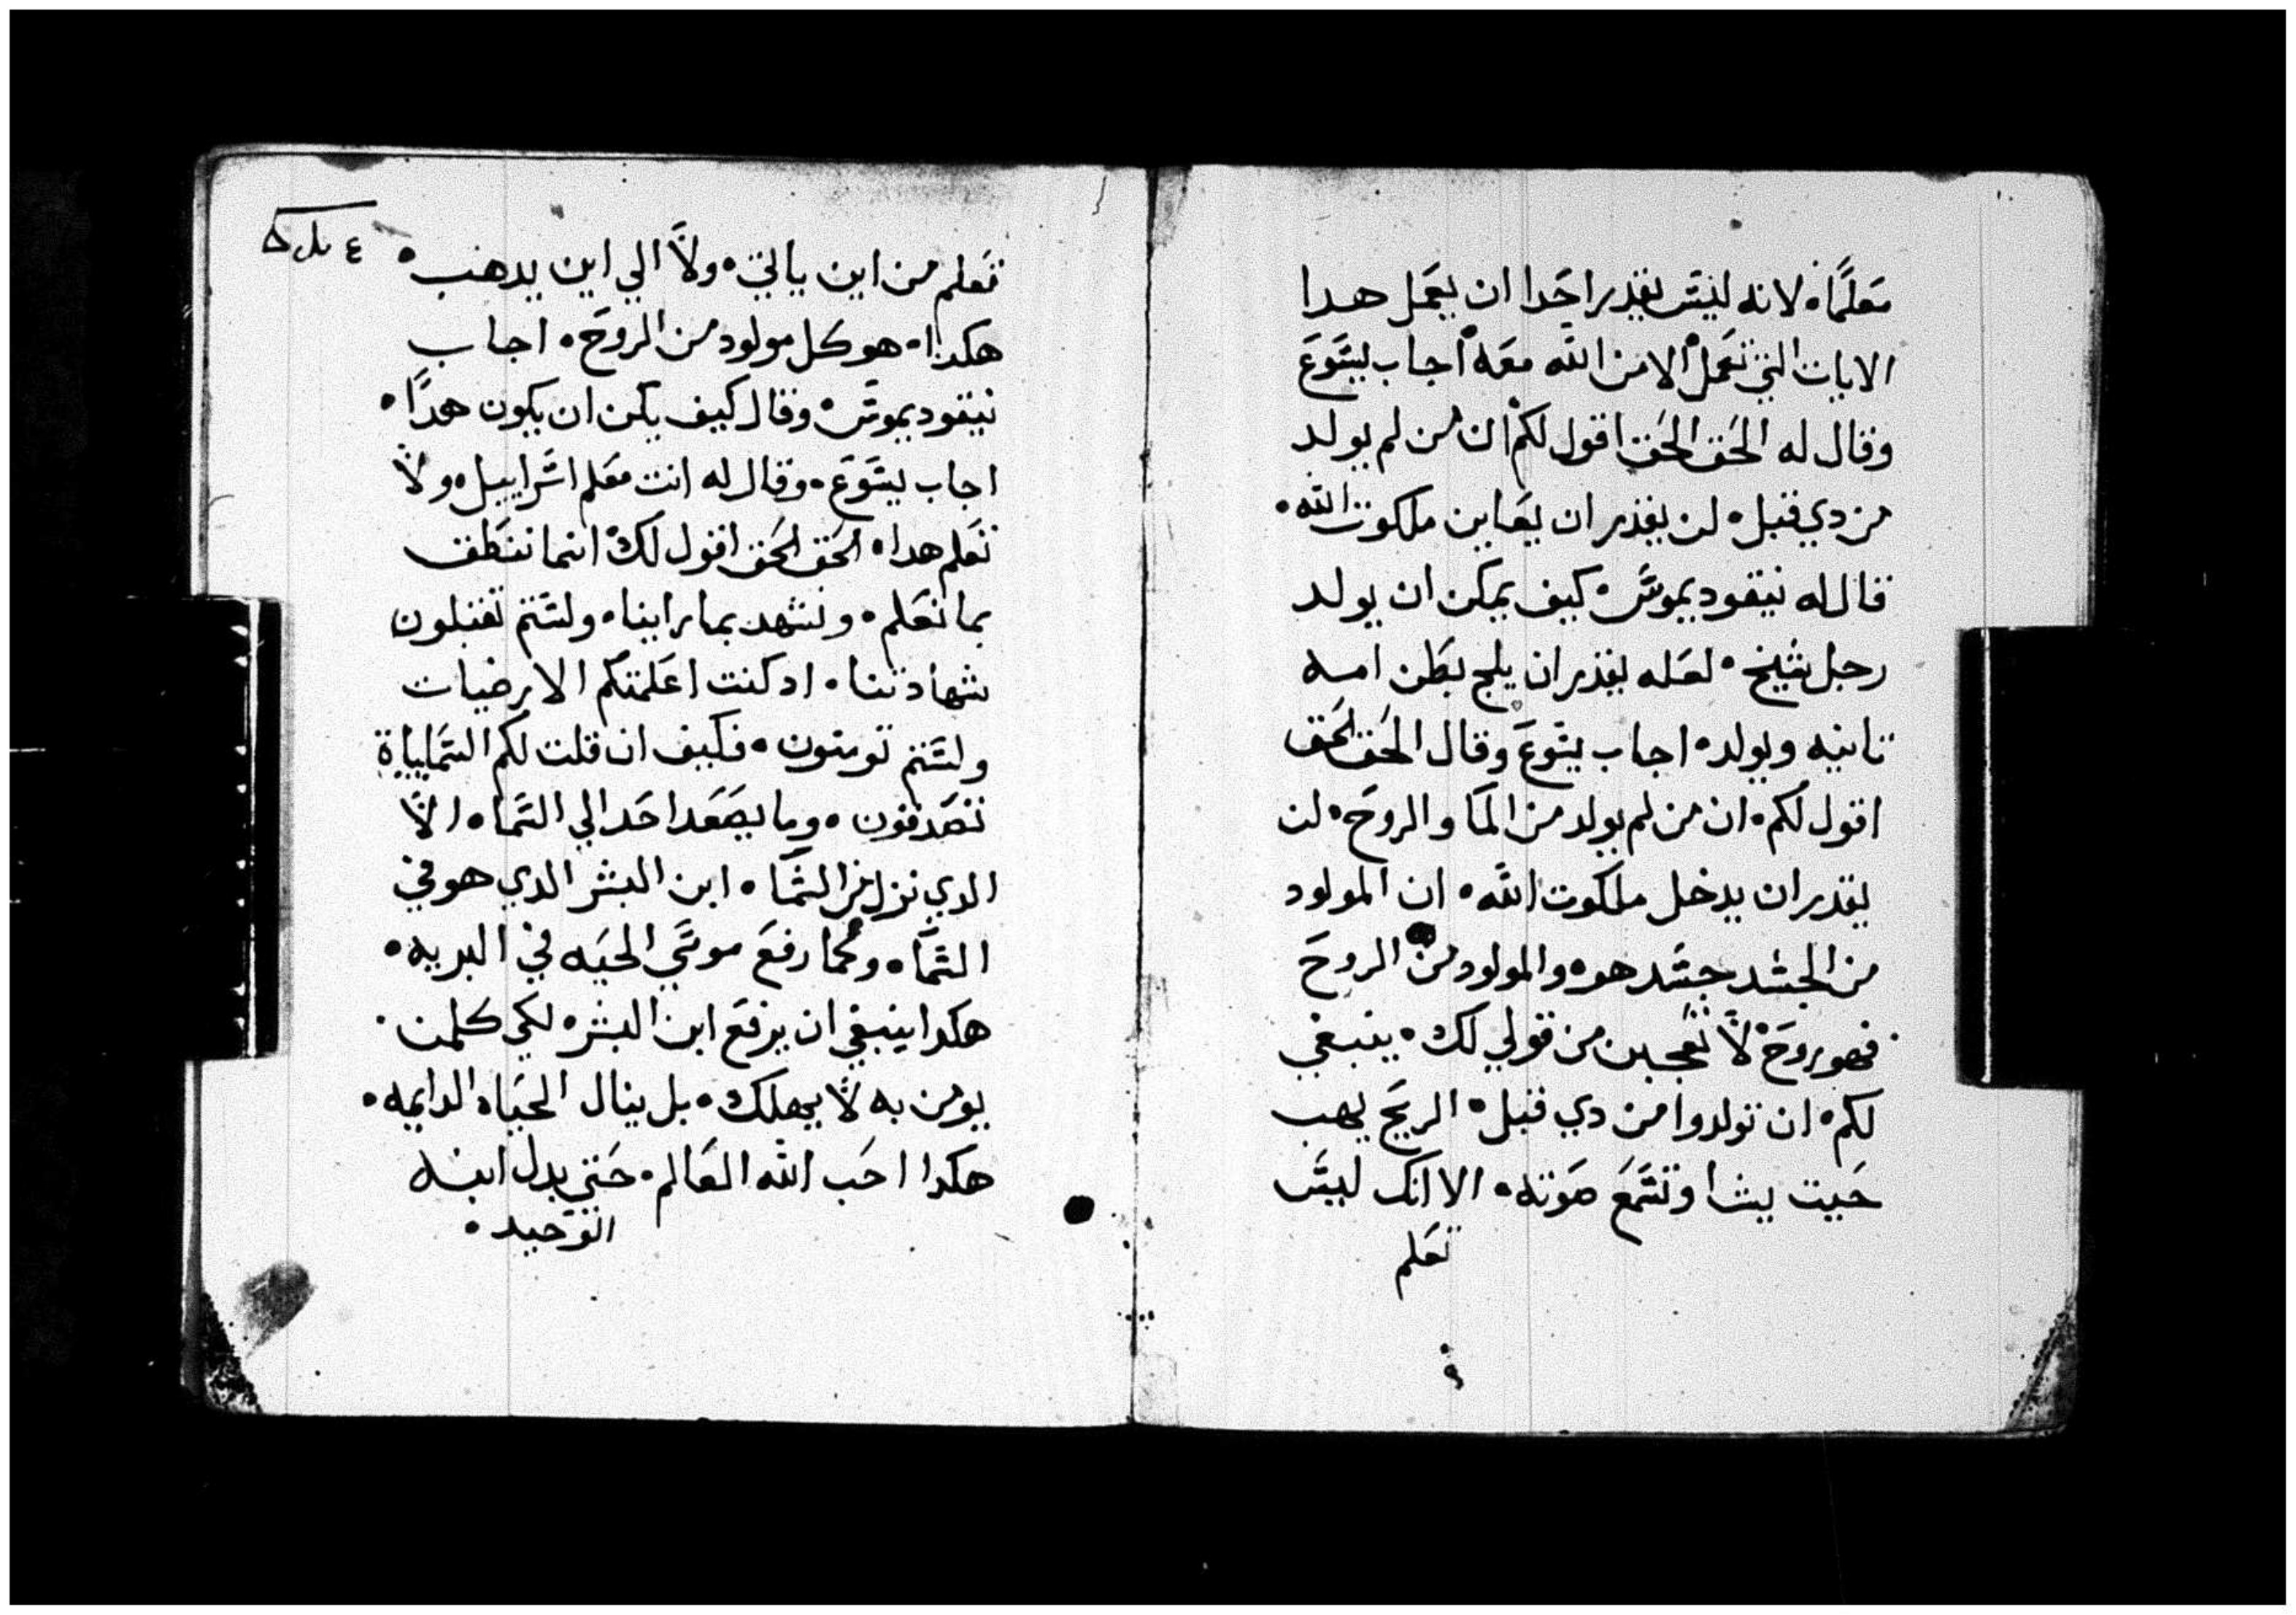 معلمًا. لانه ليس يقدر احدا ان يعمل هدا
الايات التي تعمل الا من الله معه. اجاب يسوع
وقال له الحق الحق اقول لكم ان من لم يولد
من دي قبل. لن يقدر ان يعاين ملكوت الله.
قال له نيقوديموس. كيف يمكن ان يولد
رجل شيخ. لعله يقدر ان يلج بطن امه
تانيه ويولد. اجاب يسوع وقال الحق الحق
اقول لكم. ان من لم يولد من الما والروح. لن
يقدر ان يدخل ملكوت الله. ان المولود
من الجسد جسد هو. والمولود من الروح
فهو روح. لا تعجبن من قولي لك. ينبغي
لكم. ان تولدوا من دي قبل. الريح يهب
حيت يشا وتسمع صوته. الا انك ليس
تعلم
تعلم من اين ياتي. ولا الي اين يدهب.
هكدا. هو كل مولود من الروح. اجاب
نيقوديموس. وقال كيف يكن ان يكون هدا.
اجاب يسوع. وقال له انت معلم اسراييل. ولا
تعلم هدا. الحق الحق اقول لك. انما ننطق
بما نعلم. ونشهد بما راينا. ولستم تقبلون
شهادتنا. اد كنت اعلمتكم الارضيات
ولستم تومنون. فكيف ان قلت لكم السماييات
تصدقون. وما يصعد احد الي السما. الا
الدي نزل من السما. ابن البشر الدي هو في
السما. وكما رفع موسي الحيه في البريه.
هكدا ينبغي ان يرفع ابن البشر. لكي كلمن
يومن به لا يهلك. بل ينال الحياه الدايمه.
هكدا احب الله العالم. حتي بدل ابنه
الوحيد.